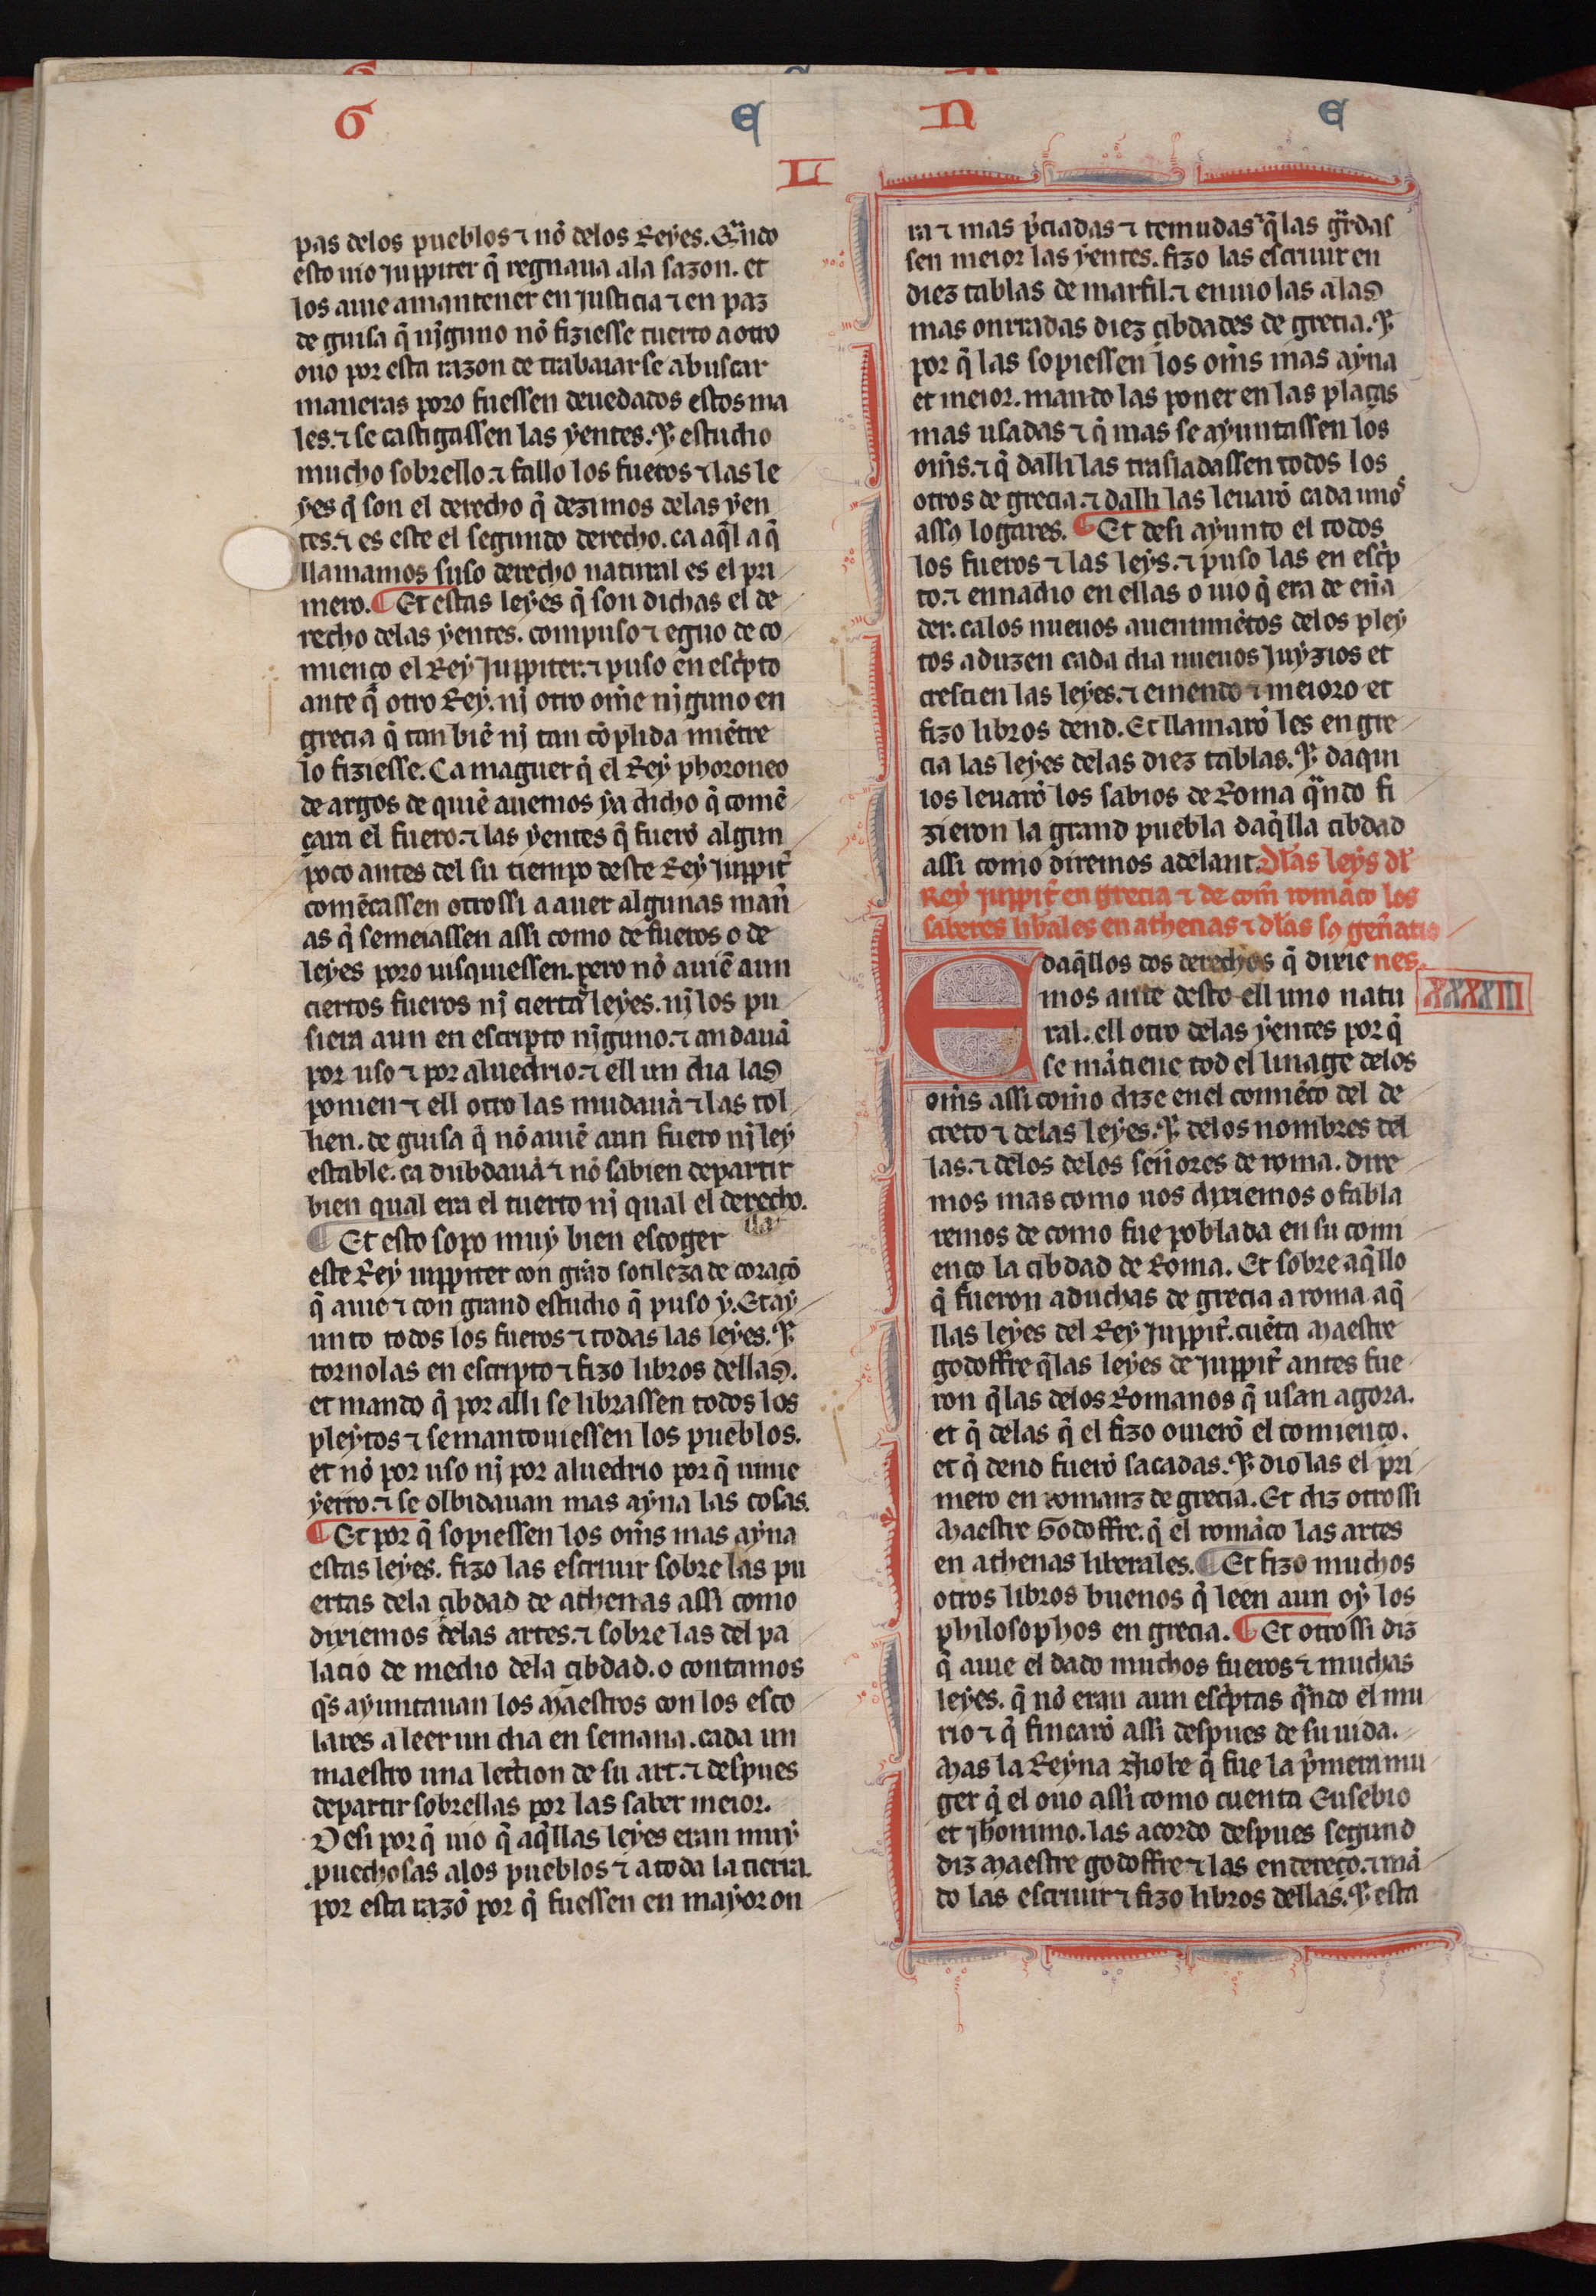 G E N E
L
pas delos pueblos ⁊ nõ delos Reyes. Q̃ndo
esto uio Juppiter q̃ regnaua ala sazon. et
los auie amantener en justicia ⁊ en paz
de guisa q̃ nj̃guno nõ fiziesse tuerto a otro
ouo por esta razon de trabaiarse abuscar
maneras poro fuessen deuedados estos ma
les. ⁊ se castigassen las yentes. ⁊ estudio
mucho sobrello. ⁊ fallo los fueros ⁊ las le
yes q̃ son el derecho q̃ dezimos delas yen
tes. ⁊ es este el segundo derecho. ca aq̃l a q̃
llamamos suso derecho natural es el pri
mero. ¶ Et estas leyes q̃ son dichas el de
recho delas yentes. compuso ⁊ eguo de co
mienço el Rey Juppiter. ⁊ puso en escͥpto
ante q̃ otro Rey. nj otro om̃e nj̃guno en
grecia q̃ tan biẽ nj tan cõplida miẽtre
lo fiziesse. Ca maguer q̃ el Rey phoroneo
de argos de quiẽ auemos ya dicho q̃ comẽ
çara el fuero. ⁊ las yentes q̃ fuerõ algun
poco antes del su tiempo deste Rey Juppit̃
comẽçassen otrossi a auer algunas man̾
as q̃ semeiassen assi como de fueros o de
leyes poro uisquiessen. pero nõ auiẽ aun
ciertos fueros nj ciertas leyes. nj los pu
siera aun en escripto nj̃guno. ⁊ andauã
por uso ⁊ por aluedrio. ⁊ ell un dia las
ponien ⁊ ell otro las mudauã ⁊ las tol
lien. de guisa q̃ nõ auiẽ aun fuero nj ley
estable. ca dubdauã ⁊ nõ sabien departir
bien qual era el tuerto nj qual el derecho.
¶ Et esto sopo muy bien escoger
este Rey iuppiter con grãd sotileza de coraçõ
q̃ auie ⁊ con grand estudio q̃ puso y. Et ay
unto todos los fueros ⁊ todas las leyes. ⁊
tornolas en escripto ⁊ fizo libros dellas.
et mando q̃ por alli se librassen todos los
pleytos ⁊ se mantouiessen los pueblos.
et nõ por uso nj por aluedrio por q̃ uinie
yerro. ⁊ se olbidauan mas ayna las cosas.
¶ Et por q̃ sopiessen los om̃s mas ayna
estas leyes. fizo las escriuir sobre las pu
ertas dela çibdad de athenas assi como
dixiemos delas artes. ⁊ sobre las del pa
lacio de medio dela çibdad. o contamos
q̃s ayuntauan los Maestros con los esco
lares a leer un dia en semana. cada un
maestro una lection de su art. ⁊ despues
departir sobrellas por las saber meior.
Desi por q̃ uio q̃ aq̃llas leyes eran muy
puechosas alos pueblos ⁊ a toda la tierra.
por esta razõ por q̃ fuessen en mayor on
ra ⁊ mas p̃ciadas ⁊ temudas ⁊ q̃ las gr̃das
sen meior las yentes. fizo las escriuir en
diez tablas de marfil. ⁊ enuio las alas
mas onrradas diez çibdades de grecia. ⁊
por q̃ las sopiessen los om̃s mas ayna
et meior. mando las poner en las plaças
mas usadas ⁊ q̃ mas se ayuntassen los
om̃s. ⁊ q̃ dalli las trasladassen todos los
otros de grecia. ⁊ dalli las leuarõ cada unos
assꝯ logares. ¶ Et desi ayunto el todos
los fueros ⁊ las leys. ⁊ puso las en escͥp
to. ⁊ ennadio en ellas o uio q̃ era de eña
der. ca los nueuos auenimiẽtos delos pley
tos aduzen cada dia nueuos juyzios et
crescien las leyes. ⁊ emendo ⁊ meioro et
fizo libros dend. Et llamarõ les en gre
cia las leyes delas diez tablas. ⁊ daqui
los leuarõ los sabios de Roma q̃ndo fi
zieron la grand puebla daq̃lla cibdad
assi como diremos adelant. Dlas leys dl
Rey Juppit̃ en grecia ⁊ de com̃ romãço los
saberes libãles en athenas ⁊ dlas sꝯ gen̾atio
nes. XXXXIII
E daq̃llos dos derechos q̃ dixie
mos ante desto ell uno natu
ral. ell otro delas yentes por q̃
se mãtiene tod el linage delos
om̃s assi com̃o dize en el comiẽço del de
creto ⁊ delas leyes. ⁊ delos nombres del
las. ⁊ delos delos señores de roma. dire
mos mas como uos dixiemos o fabla
remos de como fue poblada en su comi
enço la cibdad de Roma. Et sobre aq̃llo
q̃ fueron aduchas de grecia a roma aq̃
llas leyes del Rey Juppit̃. cuẽta Maestre
godoffre q̃ las leyes de Juppit̃ antes fue
ron q̃ las delos Romanos q̃ usan agora.
et q̃ delas q̃ el fizo ouierõ el comienço.
et q̃ dend fuerõ sacadas. ⁊ dio las el pri
mero en romanz de grecia. Et diz otrossi
Maestre Godoffre. q̃ el romãço las artes
en athenas liberales. ¶ Et fizo muchos
otros libros buenos q̃ leen aun oy los
philosophos en grecia. ¶ Et otrossi diz
q̃ auie el dado muchos fueros ⁊ muchas
leyes. q̃ nõ eran aun escͥptas q̃ndo el mu
rio ⁊ q̃ fincarõ assi despues de su uida.
Mas la Reyna Niobe q̃ fue la p̃mera mu
ger q̃ el ouo assi como cuenta Eusebio
et jheronimo. las acordo despues segund
diz Maestre godoffre ⁊ las endereço. ⁊ mã
do las escriuir ⁊ fizo libros dellas. ⁊ esta